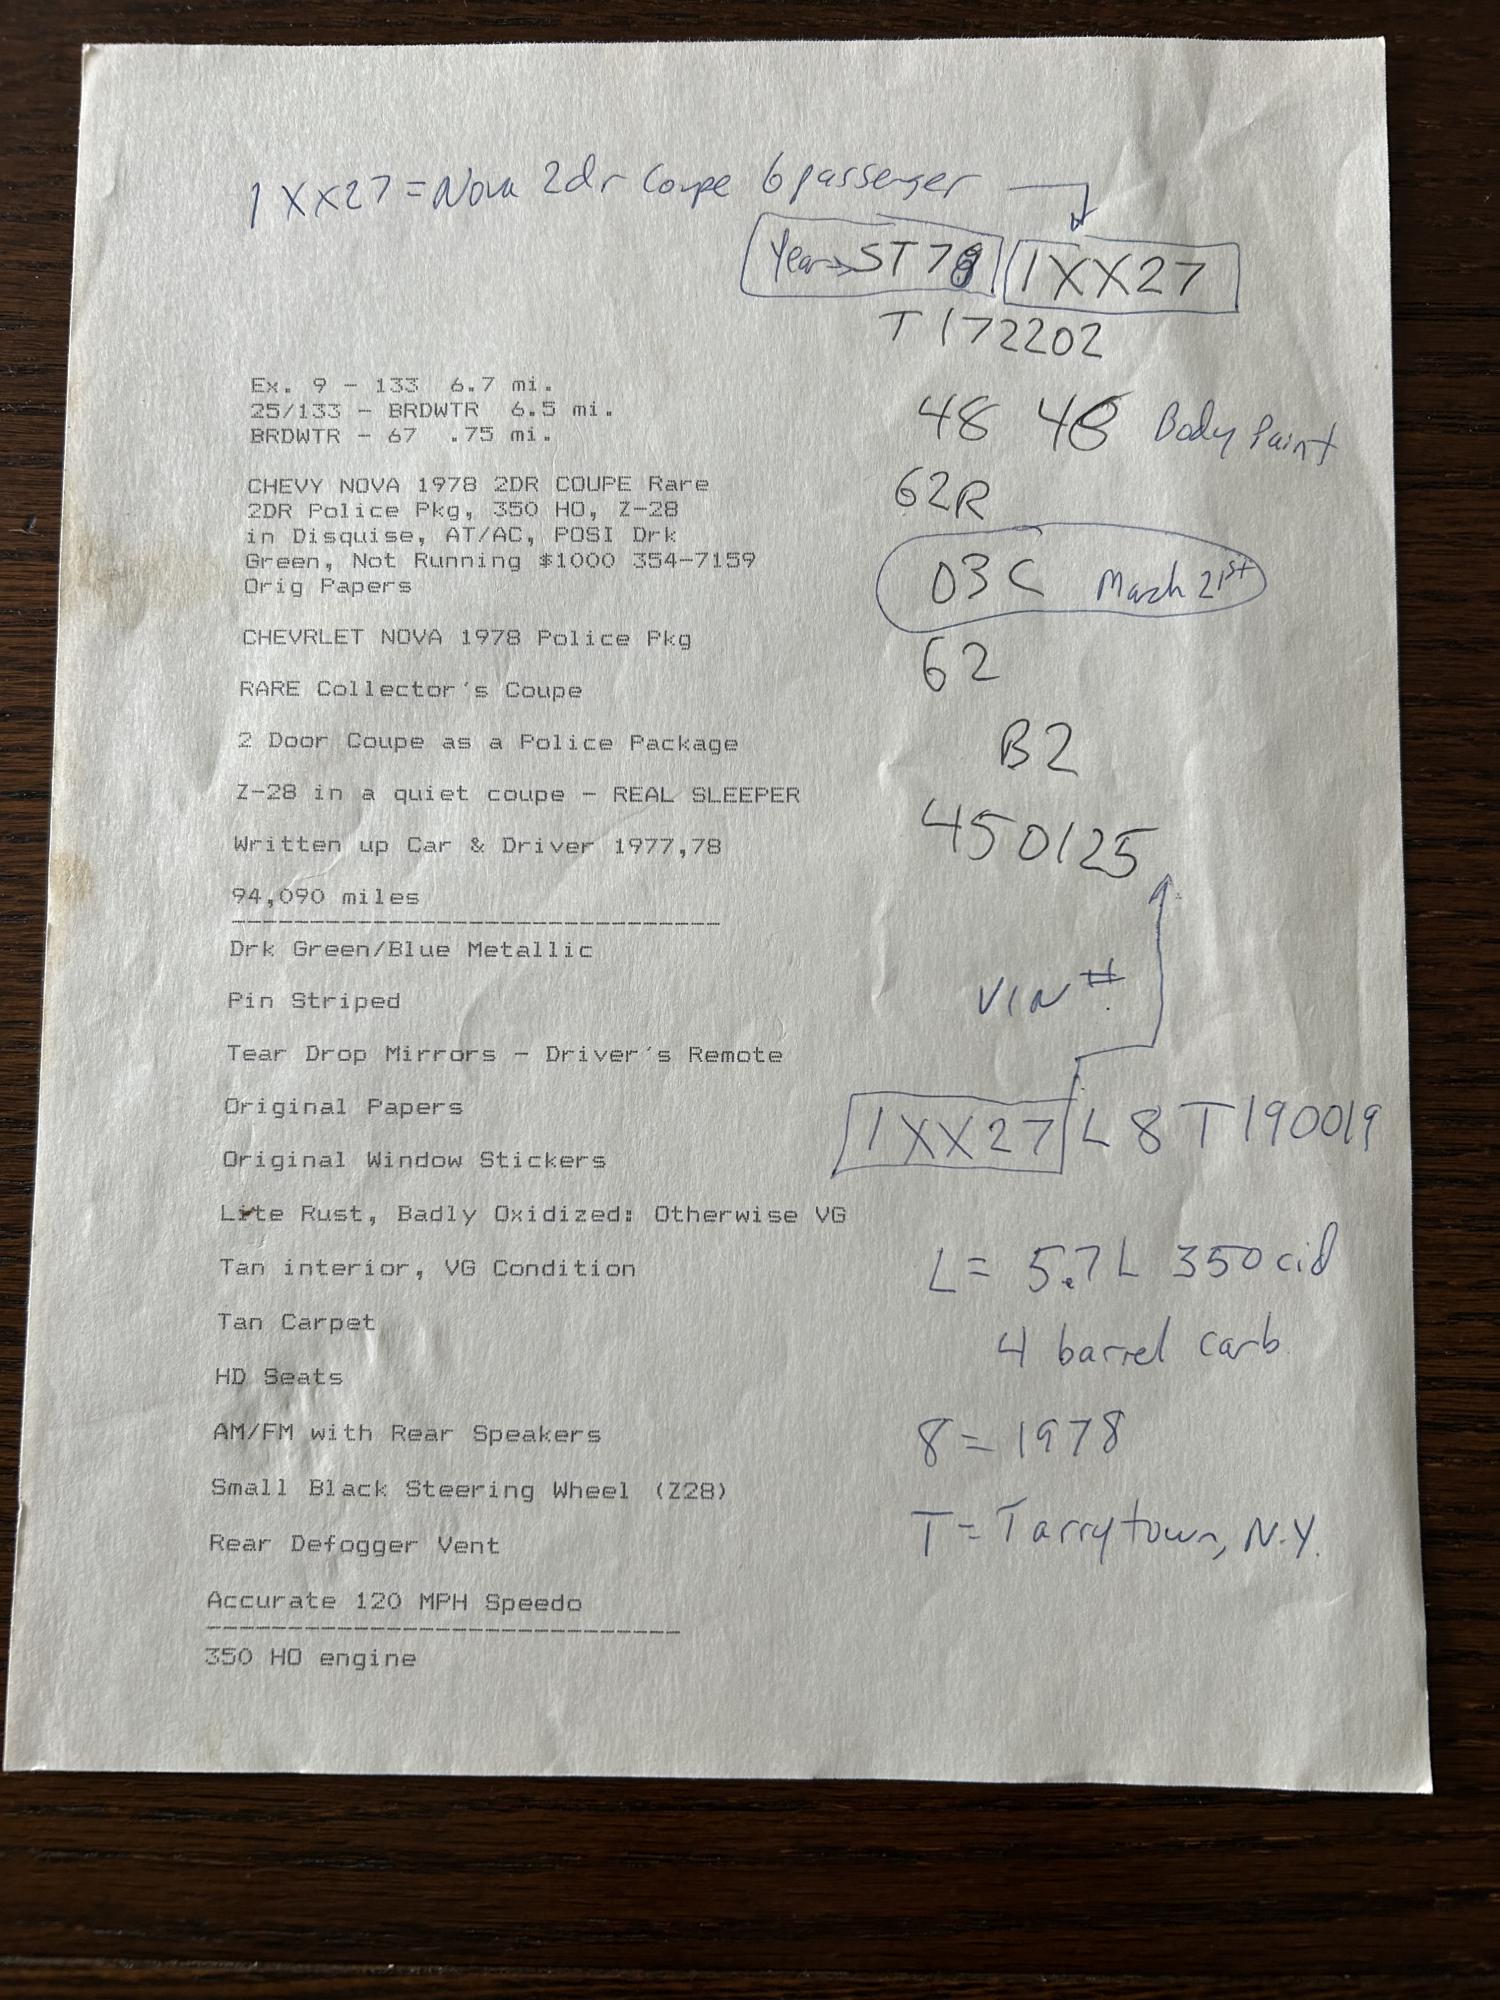 1XX27 = Nova 2dr Coupe 6 passenger
Year → ST78 1XX27
T172202
Ex. 9 - 133 6.7 mi.
25/133 - BRDWTR 6.5 mi.
BRDWTR - 67 .75 mi.
48 48 Body Paint
CHEVY NOVA 1978 2DR COUPE Rare
2DR Police Pkg, 350 HO, Z-28
in Disquise, AT/AC, POSI Drk
Green, Not Running $1000 354-7159
Orig Papers
62R
03C March 21st
CHEVRLET NOVA 1978 Police Pkg
62
RARE Collector's Coupe
2 Door Coupe as a Police Package
B2
Z-28 in a quiet coupe - REAL SLEEPER
Written up Car & Driver 1977,78
450125
94,090 miles
Drk Green/Blue Metallic
Pin Striped
VIN #
Tear Drop Mirrors - Driver's Remote
Original Papers
1XX27 L8T190019
Original Window Stickers
Lite Rust, Badly Oxidized: Otherwise VG
Tan interior, VG Condition
L = 5.7L 350 cid
Tan Carpet
4 barrel carb
HD Seats
AM/FM with Rear Speakers
8 = 1978
Small Black Steering Wheel (Z28)
Rear Defogger Vent
T = Tarrytown, N.Y.
Accurate 120 MPH Speedo
350 HO engine